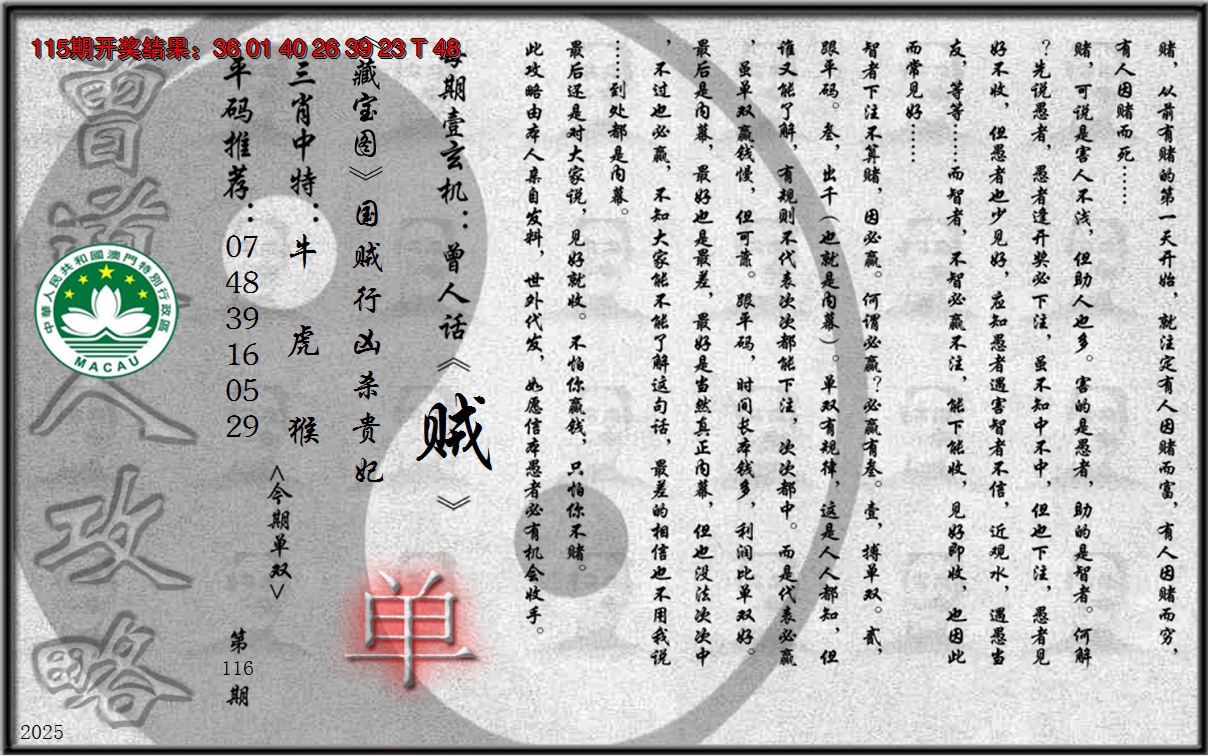 115期开奖结果：36 01 40 26 39 23 T 48
赌，从前有赌的第一天开始，就注定有人因赌而富，有人因赌而穷，
有人因赌而死……
赌，可说是害人不浅，但助人也多。害的是愚者，助的是智者。何解
？先说愚者，愚者逢开奖必下注，虽不知中不中，但也下注，愚者见
好不收，但愚者也少见好，应知愚者遇害智者不信，近观水，遇愚当
友，等等……而智者，不智必赢不注，能下能收，见好即收，也因此
而常见好……
智者下注不算赌，因必赢。何谓必赢？必赢有叁。壹，搏单双。贰，
跟平码。叁，出千（也就是内幕）。单双有规律，这是人人都知，但
谁又能了解，有规则不代表次次都能下注，次次都中。而是代表必赢
，虽单双赢钱慢，但可靠。跟平码，时间长本钱多，利润比单双好。
最后是内幕，最好也是最差，最好是当然真正内幕，但也没法次次中
，不过也必赢，不知大家能不能了解这句话，最差的相信也不用我说
……到处都是内幕。
最后还是对大家说，见好就收。不怕你赢钱，只怕你不赌。
此攻略由本人亲自发料，世外代发，如愿信本愚者必有机会收手。
每期壹玄机：曾人话《贼》
《藏宝图》国贼行凶杀贵妃
三肖中特：牛 虎 猴
<今期单双>
单
平码推荐：07 48 39 16 05 29
第116期
曾道人攻略
中華人民共和國澳門特別行政區
MACAU
2025